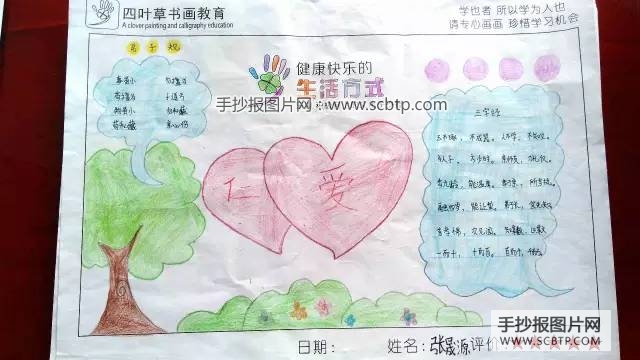 四叶草书画教育
A clover painting and calligraphy education
学也者 所以学为人也
请专心画画 珍惜学习机会
弟子规
健康快乐的
生活方式
手抄报图片网 www.scbtp.com
事虽小 勿擅为
苟擅为 子道亏
物虽小 勿私藏
苟私藏 亲心伤
三字经
玉不琢，不成器。人不学，不知义。
为人子，方少时。亲师友，习礼仪。
香九龄，能温席。孝于亲，所当执。
融四岁，能让梨。弟于长，宜先知。
首孝悌，次见闻。知某数，识某文。
一而十，十而百。百而千，
仁 爱
日期： 姓名：张晟源 评价
手抄报图片网
WWW.SCBTP.COM